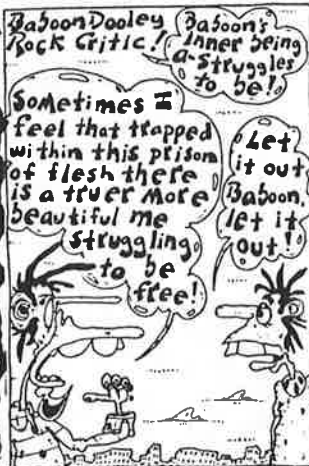 Baboon Dooley
Rock Critic!
Baboon's
inner being
a-struggles
to be!
Sometimes I
feel that trapped
within this prison
of flesh there
is a truer more
beautiful me
struggling
to be
free!
Let
it out
Baboon,
let it
out!